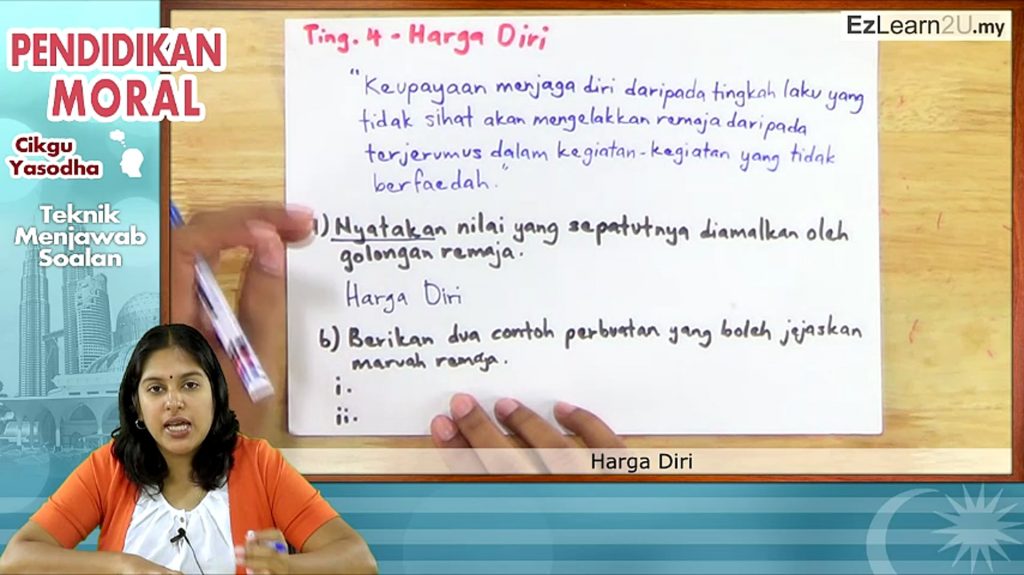 PENDIDIKAN
MORAL
Cikgu
Yasodha
Teknik
Menjawab
Soalan
EzLearn2U.my
Ting. 4 - Harga Diri
"Keupayaan menjaga diri daripada tingkah laku yang
tidak sihat akan mengelakkan remaja daripada
terjerumus dalam kegiatan-kegiatan yang tidak
berfaedah."
a) Nyatakan nilai yang sepatutnya diamalkan oleh
golongan remaja.
Harga Diri
b) Berikan dua contoh perbuatan yang boleh jejaskan
maruah remaja.
i.
ii.
Harga Diri